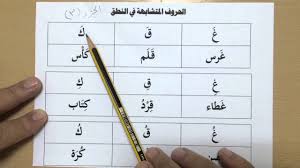 الحروف المتشابهة في النطق
غَ قَ كَ
غَرس قَلَم كَأس
غِ قِ كِ
غِطاء قِرْد كِتاب
غُ قُ كُ
كُرَة